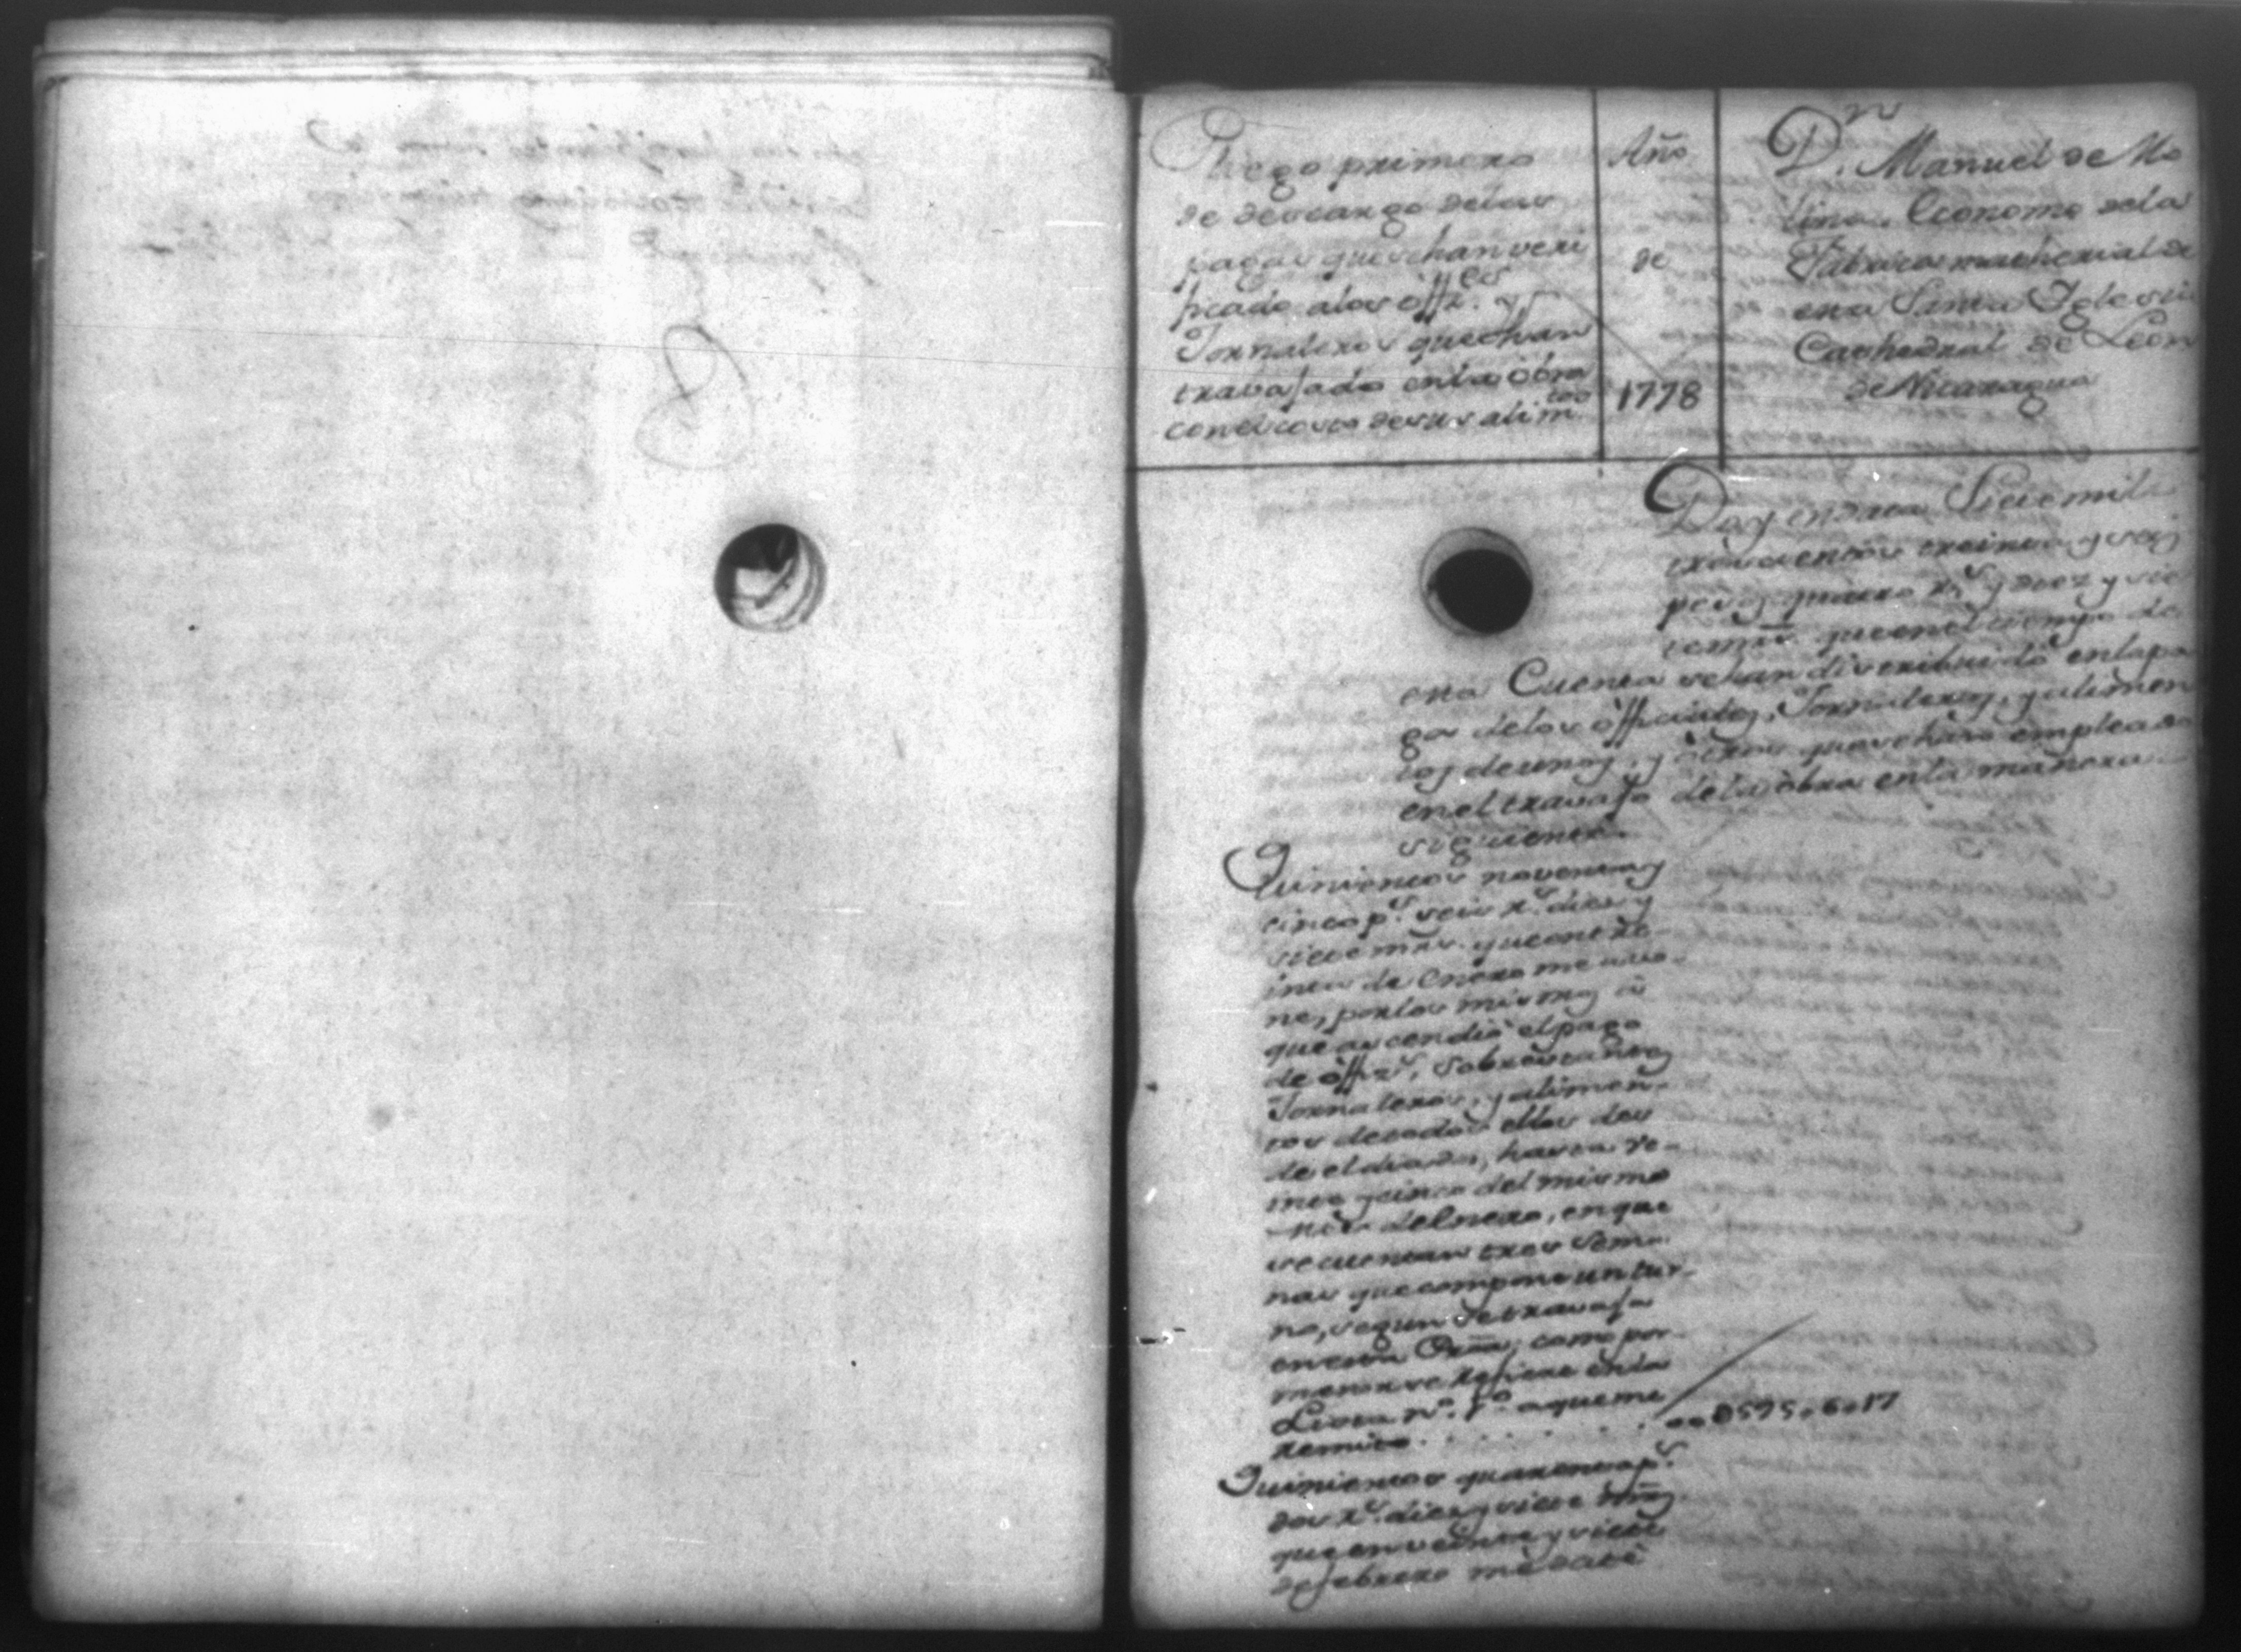 Pliego primero
de descargo delas
pagas que sehan veri
ficado alos offiz.es y
Jornaleros que han
travajado enla obra
conelcosto desus alim.tos
Año
de
1778
D.n Manuel de Mo
lina Economo dela
Fabrica matherial de
esta Santa Yglesia
Cathedral de Leon
de Nicaragua
Doy en data Siete mil
trescientos treinta y seis
pesos quatro r.s y diez y sie
te mrs. que enel tiempo de
esta Cuenta sehan distribuido enlapa
ga delos offiziales, Jornaleros, y alimen
tos deunos, y otros que sehan empleado
enel travajo dela obra enla manera
siguiente.
Quinientos noventa y
cinco p.s seis r.s diez y
siete mrs. que en tre
inta de Enero me
por los mismos a
que ascendió el pago
de offiz.s, Sobrestantes
Jornaleros, y alimen-
tos detodos ellos des
de el dia, hasta ve-
inte y cinco del mismo
mes de Enero, en que
se cuentan tres Sema
nas que compone un tur-
no, segun se travaja
en esta Obra, como por
menor se refiere enla
Lista n.o 1.o aque me
remito . . . . . . 0595,,6,,17
Quinientos quarenta p.s
dos r.s diez y siete mrs
que en veinte y siete
de febrero me daté